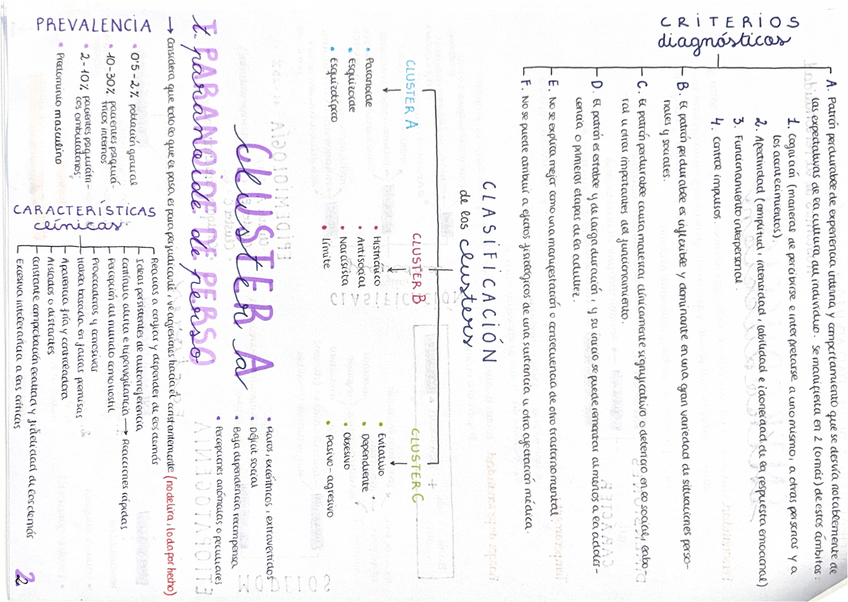 CRITERIOS
diagnósticos
A. Patrón perdurable de experiencia interna y comportamiento que se desvía notablemente de
las expectativas de la cultura del individuo. Se manifiesta en 2 (o más) de estos ámbitos:
1. Cognición (maneras de percibirse e interpretarse a uno mismo, a otras personas y a
los acontecimientos)
2. Afectividad (amplitud, intensidad, labilidad e idoneidad de la respuesta emocional)
3. Funcionamiento interpersonal.
4. Control impulsos.
B. El patrón perdurable es inflexible y dominante en una gran variedad de situaciones perso-
nales y sociales.
C. El patrón perdurable causa malestar clínicamente significativo o deterioro en lo social, labo-
ral u otras importantes del funcionamiento.
D. El patrón es estable y de larga duración, y su inicio se puede remontar al menos a la adoles-
cencia o primera etapa de la adultez.
E. No se explica mejor como una manifestación o consecuencia de otro trastorno mental
F. No se puede atribuir a efectos fisiológicos de una sustancia u otra afectación médica.
CLASIFICACIÓN
de los clusters
CLUSTER A
• Paranoide
• Esquizoide
• Esquizotípico
CLUSTER B
• Histriónico
• Antisocial
• Narcisista
• Límite
CLUSTER C
• Evitativo
• Dependiente
• Obsesivo
• Pasivo-agresivo
CLUSTER A
• Raros, excéntricos, extravertidos
• Déficit social
• Baja dependencia recompensa
• Percepciones anómalas o peculiares
T. PARANOIDE DE PERSO
t. paranoide de perso
→ Considera que todo lo que le pasa, es para perjudicarle, ve agresiones hacia él constantemente (no delira, lo da por hecho)
PREVALENCIA
• 0'5-2% población general
• 10-30% pacientes psiquiá-
tricos internos
• 2-10% pacientes psiquiátri-
cos ambulatorios
• Predominio masculino
CARACTERÍSTICAS
clínicas
Reacios a confiar y depender de los demás
Ideas persistentes de autorreferencia
Continua alerta e hipervigilancia → Reacciones rápidas
Percepción del mundo como hostil
Provocadores y corrosivos
Lógica basada en falsas premisas
Apariencia fría y controladora
Aislados o distantes
Constante comprobación lealtad y fidelidad de los demás
Excesiva intolerancia a las críticas
2